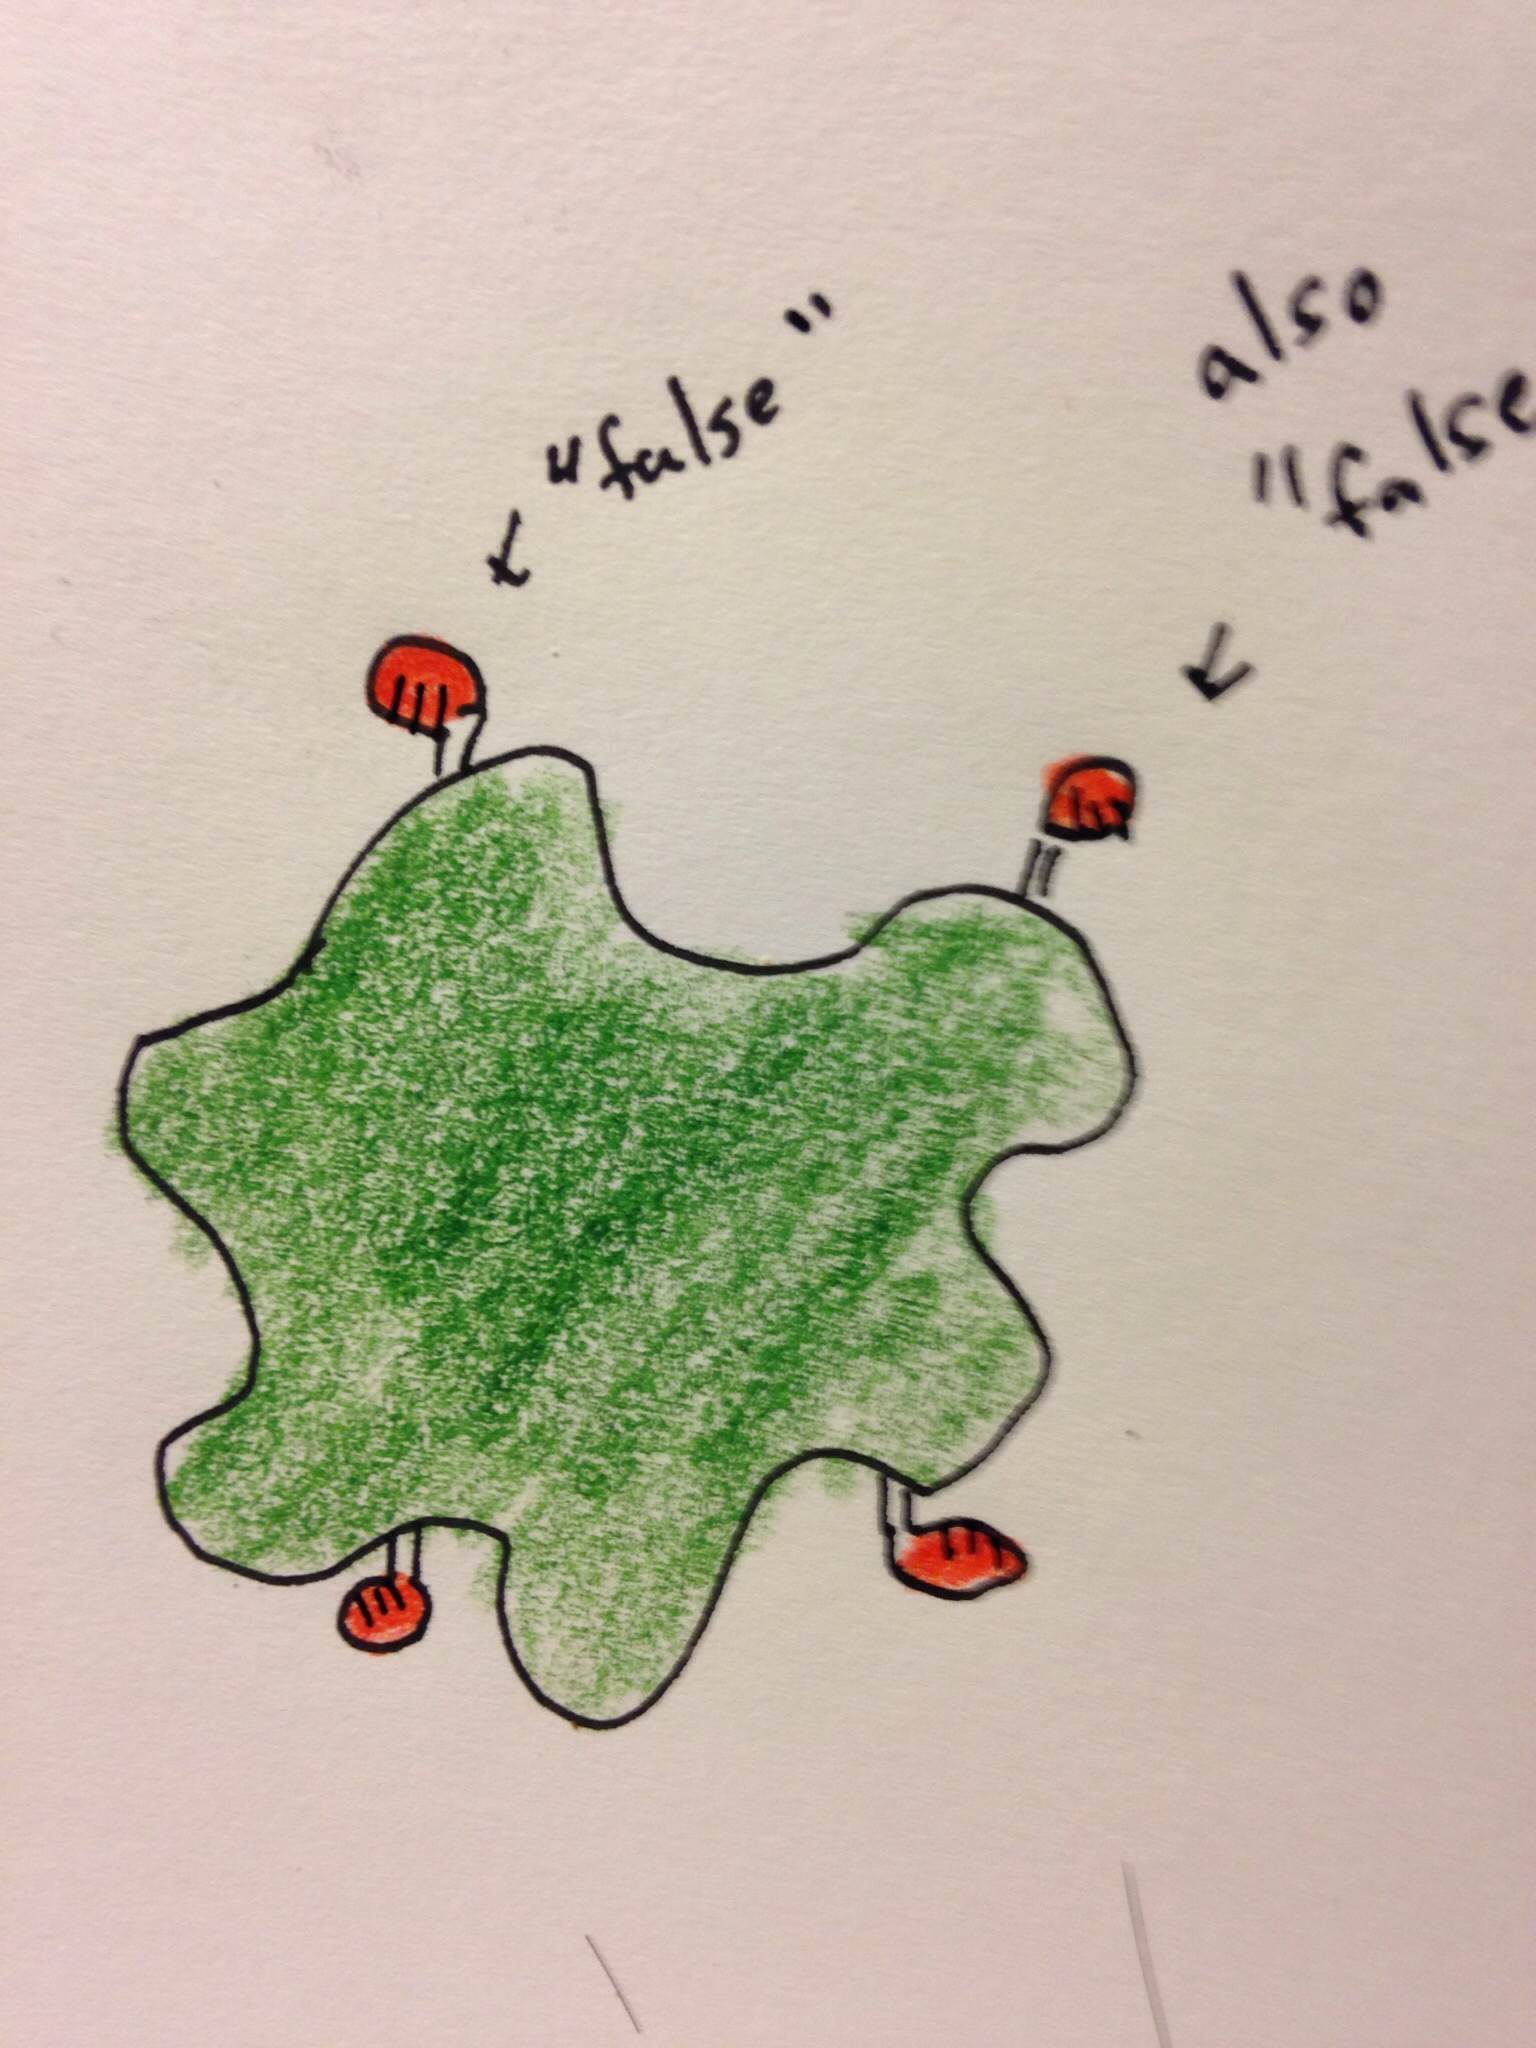 "false"
also
"false